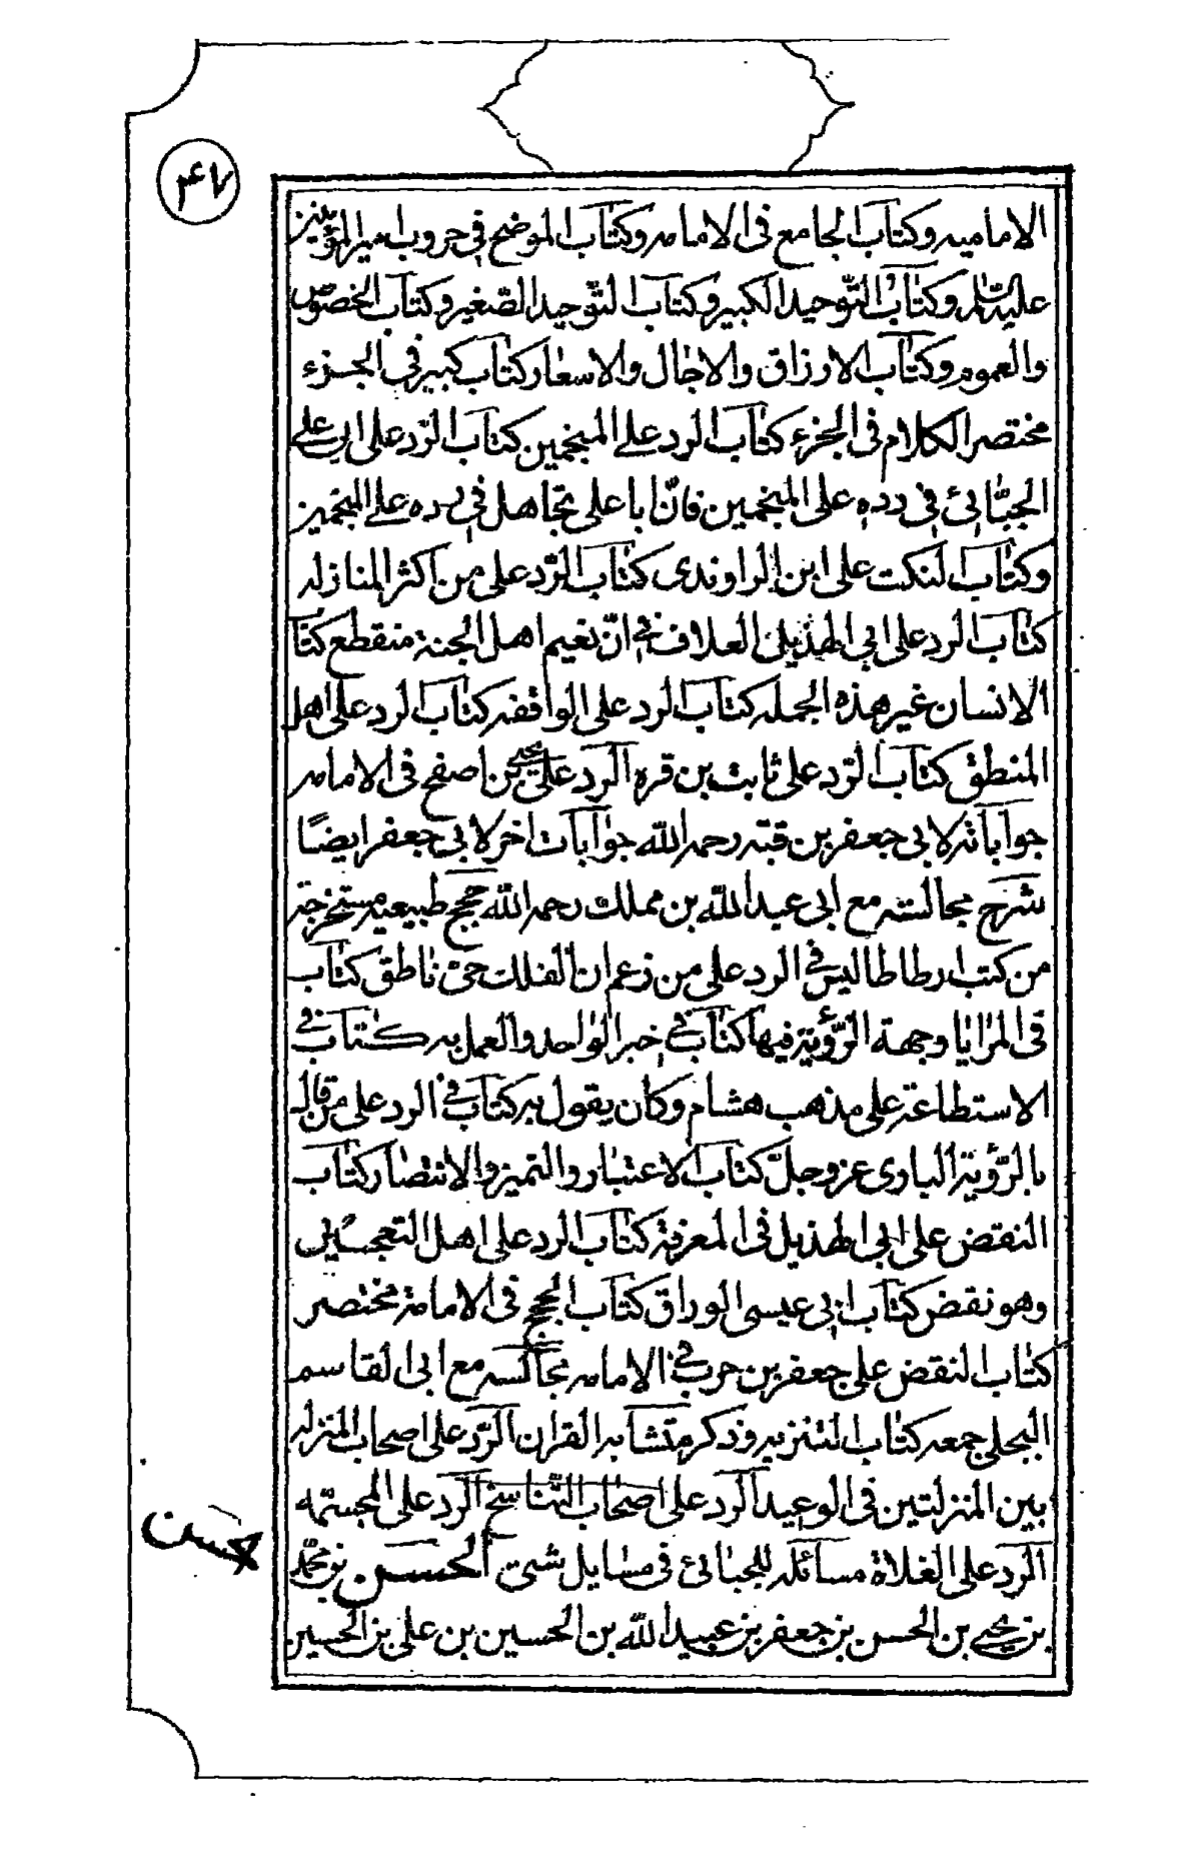 ۴۷
الاماميه وكتاب الجامع فى الامامه وكتاب الموضح فى حروب امير المؤمنين
عليه السلم وكتاب التّوحيد الكبير وكتاب التّوحيد الصّغير وكتاب الخصوص
والعموم وكتاب الارزاق والاجال والاسعار كتاب كبير فى الجزء
مختصر الكلام فى الجزء كتاب الرد على المنجمين كتاب الرّد على ابى على
الجبّائى فى رده على المنجمين فانّ ابا على تجاهل فى رده على المنجمين
وكتاب النكت على ابن الراوندى كتاب الرّد على من اكثر المنازله
كتاب الرد على ابى الهذيل العلاف فى انّ نعيم اهل الجنة منقطع كتاب
الانسان غير هذه الجمله كتاب الرد على الواقفه كتاب الرد على اهل
المنطق كتاب الرّد على ثابت بن قره الرد على يحيى بن اصفح فى الامامه
جواباته لابى جعفر بن قبته رحمه الله جوابات اخر لابى جعفر ايضًا
شرح مجالسته مع ابى عبد الله بن مملك رحمه الله حجج طبيعيه مستخرجة
من كتب ارطاطاليس فى الرد على من زعم ان الفلك حىّ ناطق كتاب
فى المرايا وجهة الرّؤية فيها كتاب فى خبر الواحد والعمل به كتاب فى
الاستطاعة على مذهب هشام وكان يقول به كتاب فى الرد على من قال
بالرّؤية البارى عز وجلّ كتاب الاعتبار والتميز والانتصار كتاب
النقض على ابى الهذيل فى المعرفة كتاب الرد على اهل التعجيز
وهو نقض كتاب ابى عيسى الوراق كتاب الحجج فى الامامة مختصر
كتاب النقض على جعفر بن حرب فى الامامه مجالسه مع ابى القاسم
البجلى جمعه كتاب التنزيه وذكر متشابه القران الرّد على اصحاب المنزله
بين المنزلتين فى الوعيد الرد على اصحاب التناسخ الرد على المجسّمه
الرد على الغلاة مسائله للجبائى فى مسايل شتى الحسن بن محمّد
حسن
بن يحيى بن الحسن بن جعفر بن عبيد الله بن الحسين بن على بن الحسين